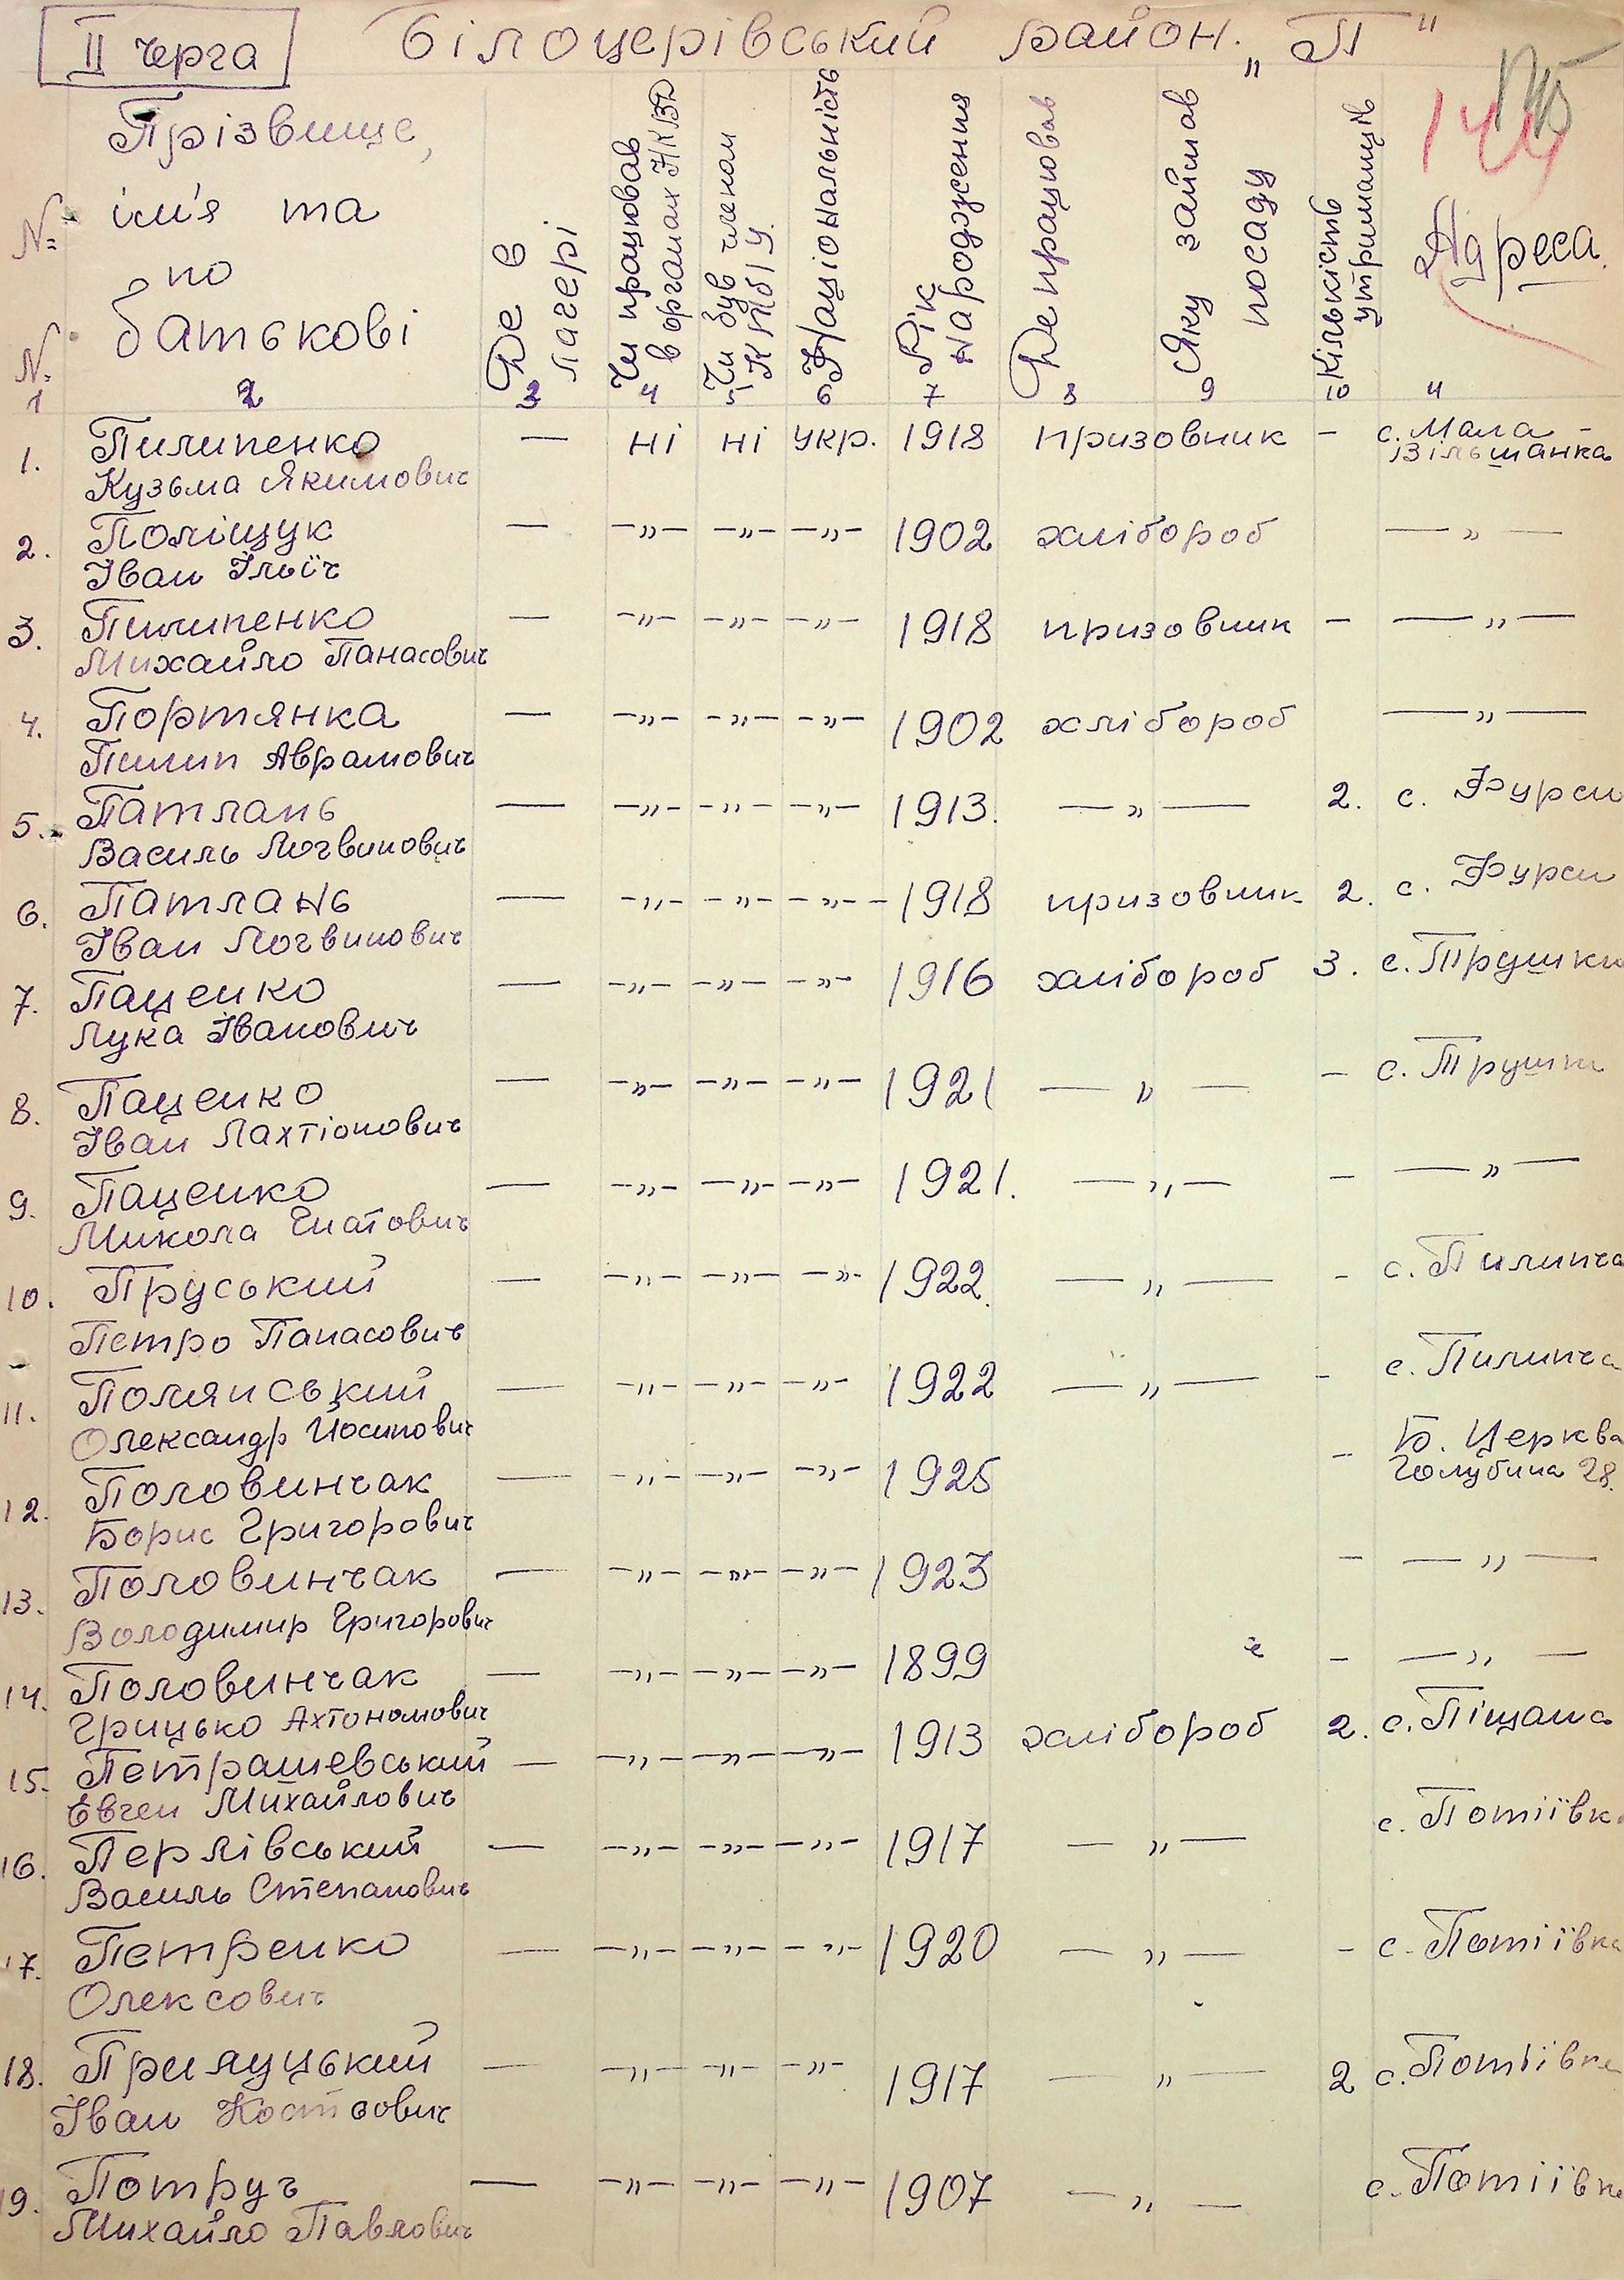 II черга Білоцерівський район. "П"
145
144
№ № Прізвище, ім'я та по батькові
Де в лагері
Чи працював в органах НКВД
Чи був членом КП(б)У.
Національність
Рік народження
Де працював
Яку займав посаду
Кількість утриманців
Адреса.
1 2 3 4 5 6 7 8 9 10 11
1. Пилипенко — ні ні укр. 1918 призовник - с. Мала -
Кузьма Якимович Вільшанка
2. Поліщук — -"- -"- -"- 1902 хлібороб — " —
Іван Ільїч
3. Пилипенко — -"- -"- -"- 1918 призовник - — " —
Михайло Панасович
4. Портянка — -"- -"- -"- 1902 хлібороб — " —
Пилип Аврамович
5. Патлань — -"- -"- -"- 1913. — " — 2. с. Фурси
Василь Логвинович
6. Патлань — -"- -"- -"- 1918 призовник 2. с. Фурси
Іван Логвинович
7. Паценко — -"- -"- -"- 1916 хлібороб 3. с. Трушки
Лука Іванович
8. Паценко — -"- -"- -"- 1921 — " — - с. Трушки
Іван Лахтіонович
9. Паценко — -"- -"- -"- 1921. — " — - — " —
Микола Гнатович
10. Пруський — -"- -"- -"- 1922. — " — - с. Пилипча
Петро Панасович
11. Полянський — -"- -"- -"- 1922 — " — - с. Пилипча
Олександр Йосипович
12. Половинчак — -"- -"- -"- 1925 - Б. Церква
Борис Григорович Голубина 28.
13. Половинчак — -"- -"- -"- 1923 - — " —
Володимир Григорович
14. Половинчак — -"- -"- -"- 1899 - — " —
Грицько Ахтономович
15. Петрашевський — -"- -"- -"- 1913 хлібороб 2. с. Піщана
Євген Михайлович
16. Перлівський — -"- -"- -"- 1917 — " — с. Потіївка
Василь Степанович
17. Петренко — -"- -"- -"- 1920 — " — - с. Потіївка
Олексович
18. Прилуцький — -"- -"- -"- 1917 — " — 2 с. Потіївка
Іван Костьович
19. Потруч — -"- -"- -"- 1907 — " — с. Потіївка
Михайло Павлович